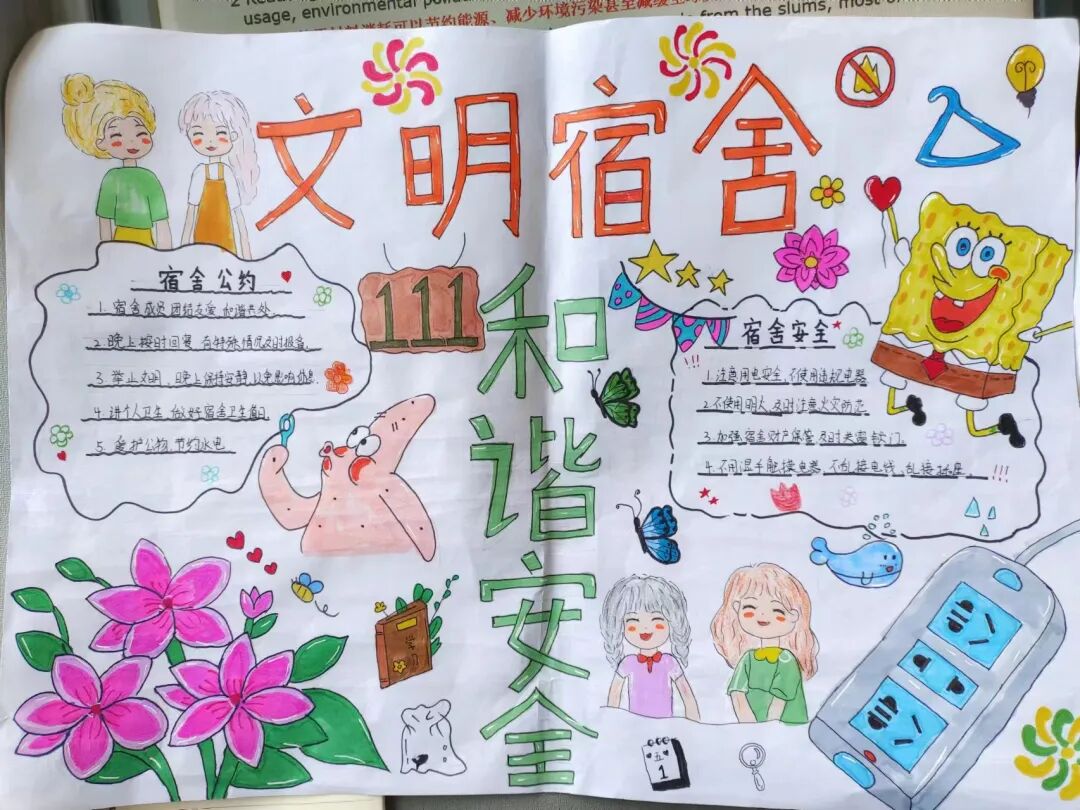 2 Read
usage, environmental pollu
from the slums, most of
可以节约能源、减少环境污染甚至减缓全球
文明宿舍
和谐安全
111
宿舍公约
1. 宿舍成员团结友爱 和谐共处
2. 晚上按时回寝 有特殊情况及时报备.
3. 举止文明, 晚上保持安静,以免影响休息.
4. 讲个人卫生 做好宿舍卫生值日
5. 爱护公物,节约水电
宿舍安全
!!!
1. 注意用电安全,不使用违规电器
2. 不使用明火,及时注意火灾防范
3. 加强宿舍财产保管 及时关窗锁门.
4. 不用湿手触摸电器, 不乱接电线,乱接插座. !!!
学习
五
1